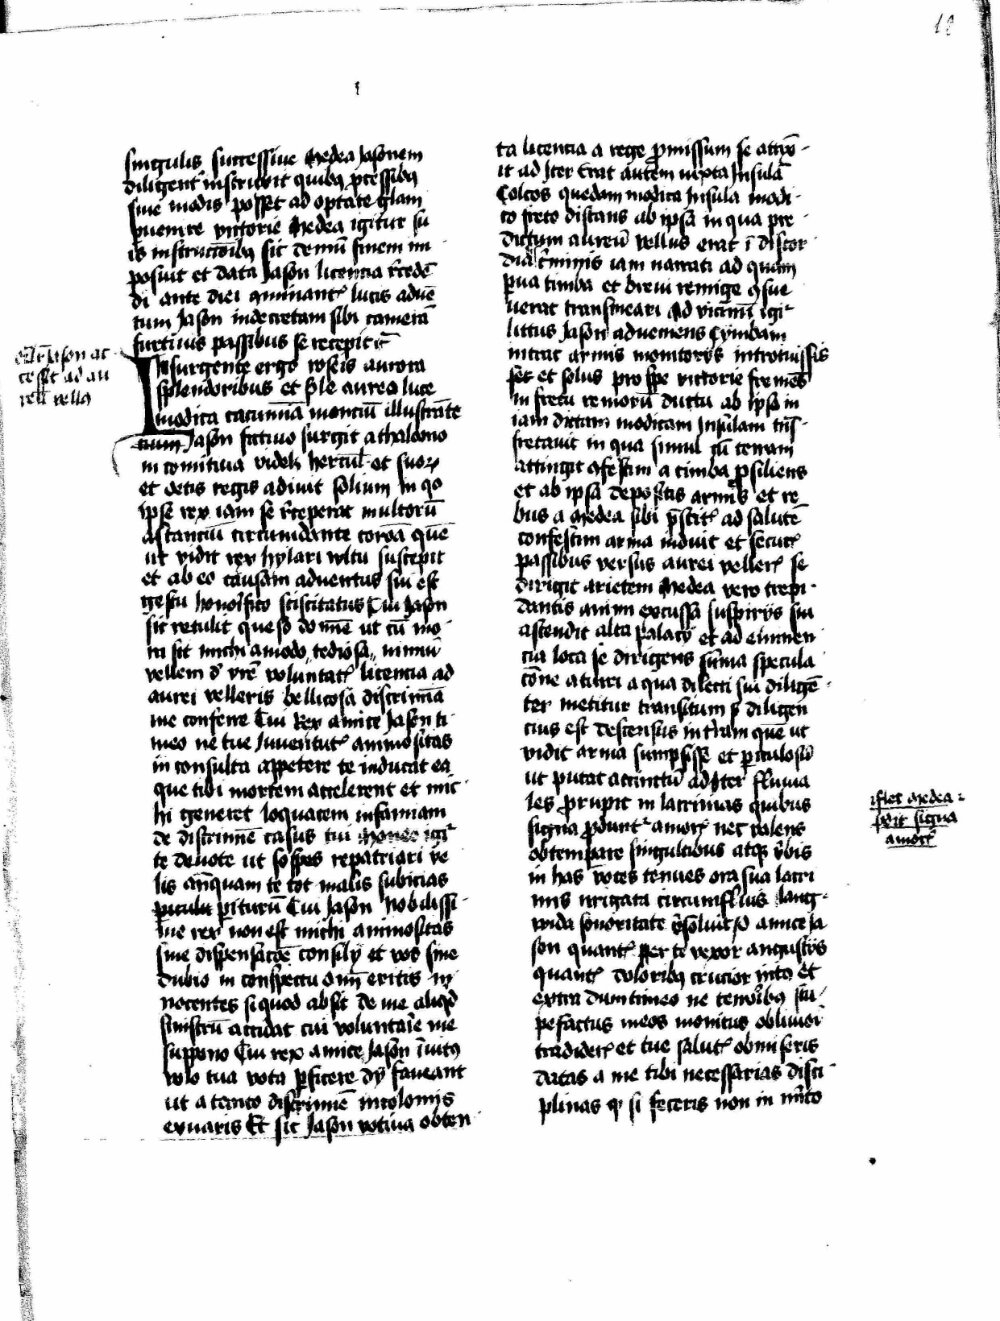 10
singulis successiue Medea Jasonem
diligent' instruxit quibus processibus
siue modis posset ad optate gl'am
puenire victorie Medea igitur su
is instructōibus sic demū finem im
posuit et data Jason licencia recedē
di ante diei lucis aduē
tum Jason indecretam sibi camerā
furtiuis passibus se recepit
Insurgente ergo roseis aurora
splendoribus et sole aureo luce
modica cacumina monciū illustrāte
Jason furtiuo surgit a thalamo
in comitiua videlicet hercul' et suor
et cetis regis adiuit solium in qo
ipse rex iam se receperat multorū
astanciū circumdante corōa quē
ut vidit rex hylari vultu suscepit
et ab eo causam aduentus sui est
gestu honorifico sciscitatus Cui Jason
sic retulit queso domīe ut cū mo
ra sit michi amodo tediosa nimiū
vellem de vr̄e voluntat' licencia ad
aurei velleris bellicosa discrimīa
me conferre Cui Rex amice Jason ti
meo ne tue Juuentut' animositas
inconsulta appetere te inducat ea
que tibi mortem accelerent et mic
hi generet loquacem infamiam
de discrimīe casus tui moneo igit'
te deuote ut sospes repatriari ve
lis anquam te tot malis subicias
periturū Cui Jason nobilissi
me rex non est michi animositas
sine dispensacōe consilij et vos sine
dubio in conspectu oīm eritis in
nocentes si quod absit de me aliqd
sinistrū accidat cui voluntarie me
suppono Cui rex amice Jason īuitus
volo tua vota pficere dij faueant
ut a tanto discrimīe incolomis
euaris Et sic Jason votiua obten
ta licencia a rege pmissum se accīx
it ad Iter Erat autem iuxta Insulā
Colcos quedam modica Insula modi
co freto distans ab ipsa in qua pre
dictum aureū vellus erat ī discor
diā crīminis iam narrati ad quam
parua cimba et breui remige consue
uerat transmeari Ad vicinū igit'
littus Jason adueniens Cymbam
intrat armis monitorijs introuissis
set et solus pro spe victorie fremēs
in fretū remorū ductu ab ipsa in
iam dictam modicam Insulam trās
fretauit in qua simul cū terram
attingit confestim a cimba psiliens
et ab ipsa depositis armis et re
bus a Medea sibi prestit' ad salutē
confestim arma induit et secur'
passibus versus aurei veller' se
dirigit arietem Medea vero trepi
dantis animi excussa suspirijs sui
ascendit alta palacij et ad eminen
cia loca se dirigens summa specula
cōne a turri a qua dilecti sui diligē
ter metitur transitum diligen
cius est descensus in terram quē ut
vidit arma sumpsisse et piculosū
ut putat accinctū ad Iter fluuia
les prupit in lacrimas quibus
signa pduntur amor' nec valens
obtempare singultibus atque vbis
in has voces tenues ora sua lacri
mis irrigata circumfluis lang
uida sonoritate psoluit O amice Ja
son quant' per te vexor angustijs
quant' doloribus crucior intus et
extra dum timeo ne temoribus stu
pefactus meos monitus obliuioī
tradider' et tue salut' obmiseris
datas a me tibi necessarias disci
plinas quod si feceris non in mīto
Jason ac
cessit ad au
reū vellus
flet Medea
signa
amor'